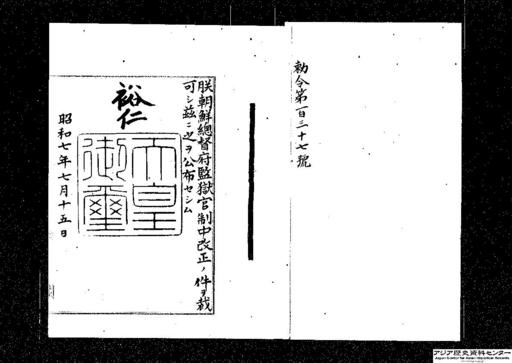 勅令第百三十七號
朕朝鮮總督府監獄官制中改正ノ件ヲ裁
可シ茲ニ之ヲ公布セシム
裕仁
天皇
御璽
昭和七年七月十五日
アジア歴史資料センター
Japan Center for Asian Historical Records